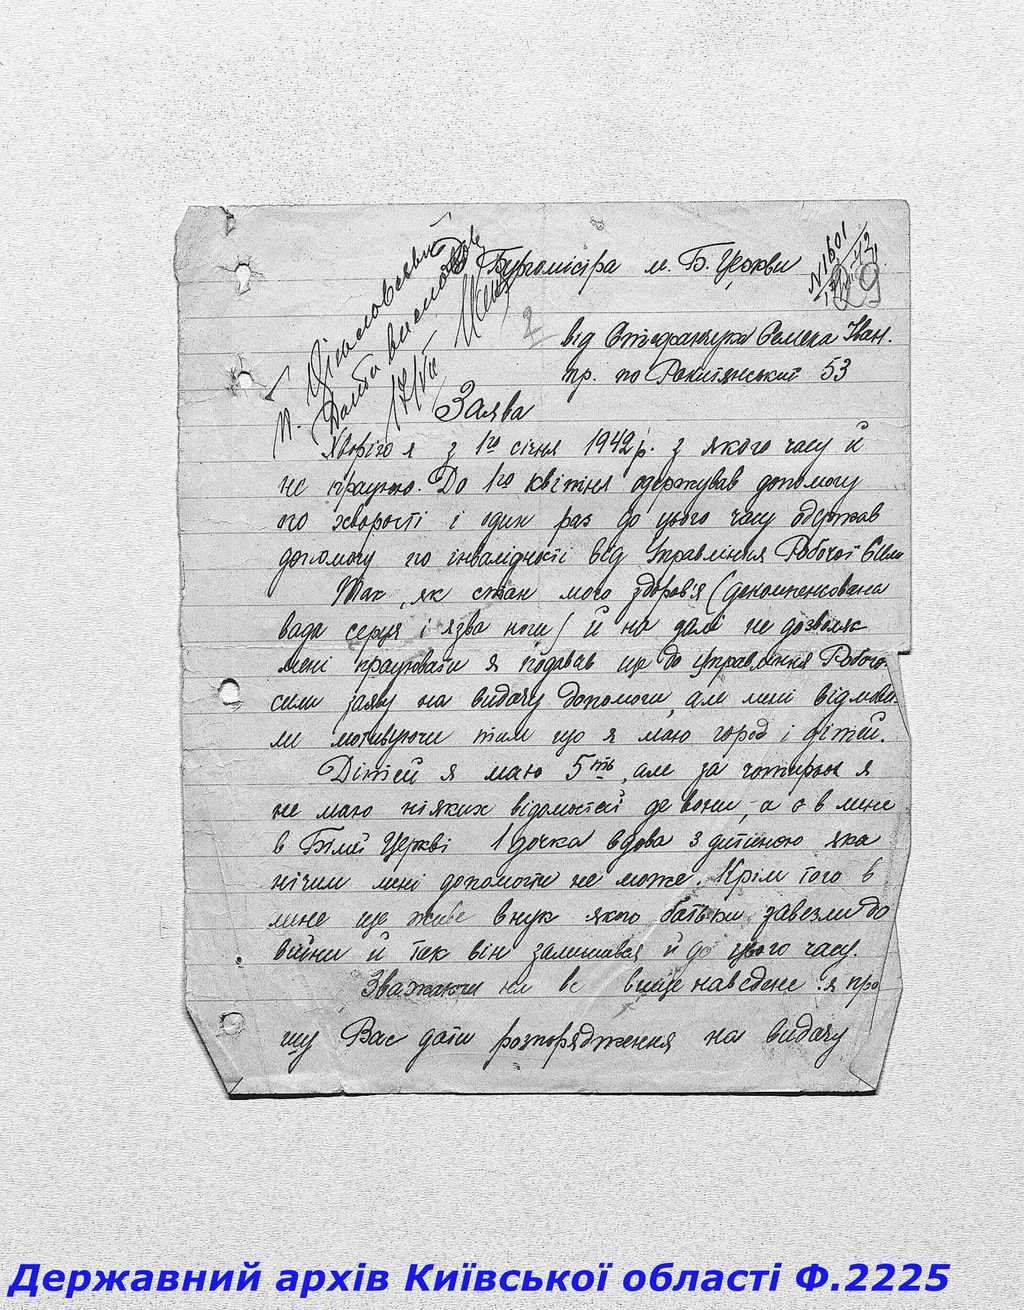 Бургомістра м. Б. Церкви
№1601
89
2
від Стефанчука Семена Іван.
пр. по Рокитянській 53
17/VII
Заява
Хворію я з 1го січня 1942 р. з якого часу й
не працюю. До 1го квітня одержував допомогу
по хворості і один раз до цього часу одержав
допомогу по інвалідності від Управління Робочої Сили
Так, як стан мого здоров'я (декомпенсована
вада серця і язва ноги) й на далі не дозволяє
мені працювати я подавав ще до Управління Робочої
сили заяву на видачу допомоги, але мені відмови-
ли мотивуючи тим що я маю город і дітей.
Дітей я маю 5ть, але за чотирьох я
не маю ніяких відомостей де вони, а є в мене
в Білій Церкві 1 дочка вдова з дитиною яка
нічим мені допомогти не може. Крім того в
мене ще живе внук якого батьки завезли до
війни й так він залишився й до цього часу.
Зважаючи на все вище наведене я про
шу Вас дати розпорядження на видачу
Державний архів Київської області Ф.2225